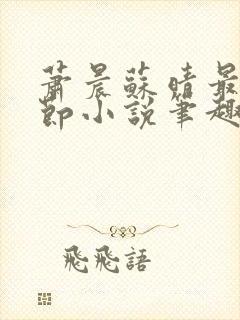 蕭晨蘇晴最
節小說筆趣
飛飛語